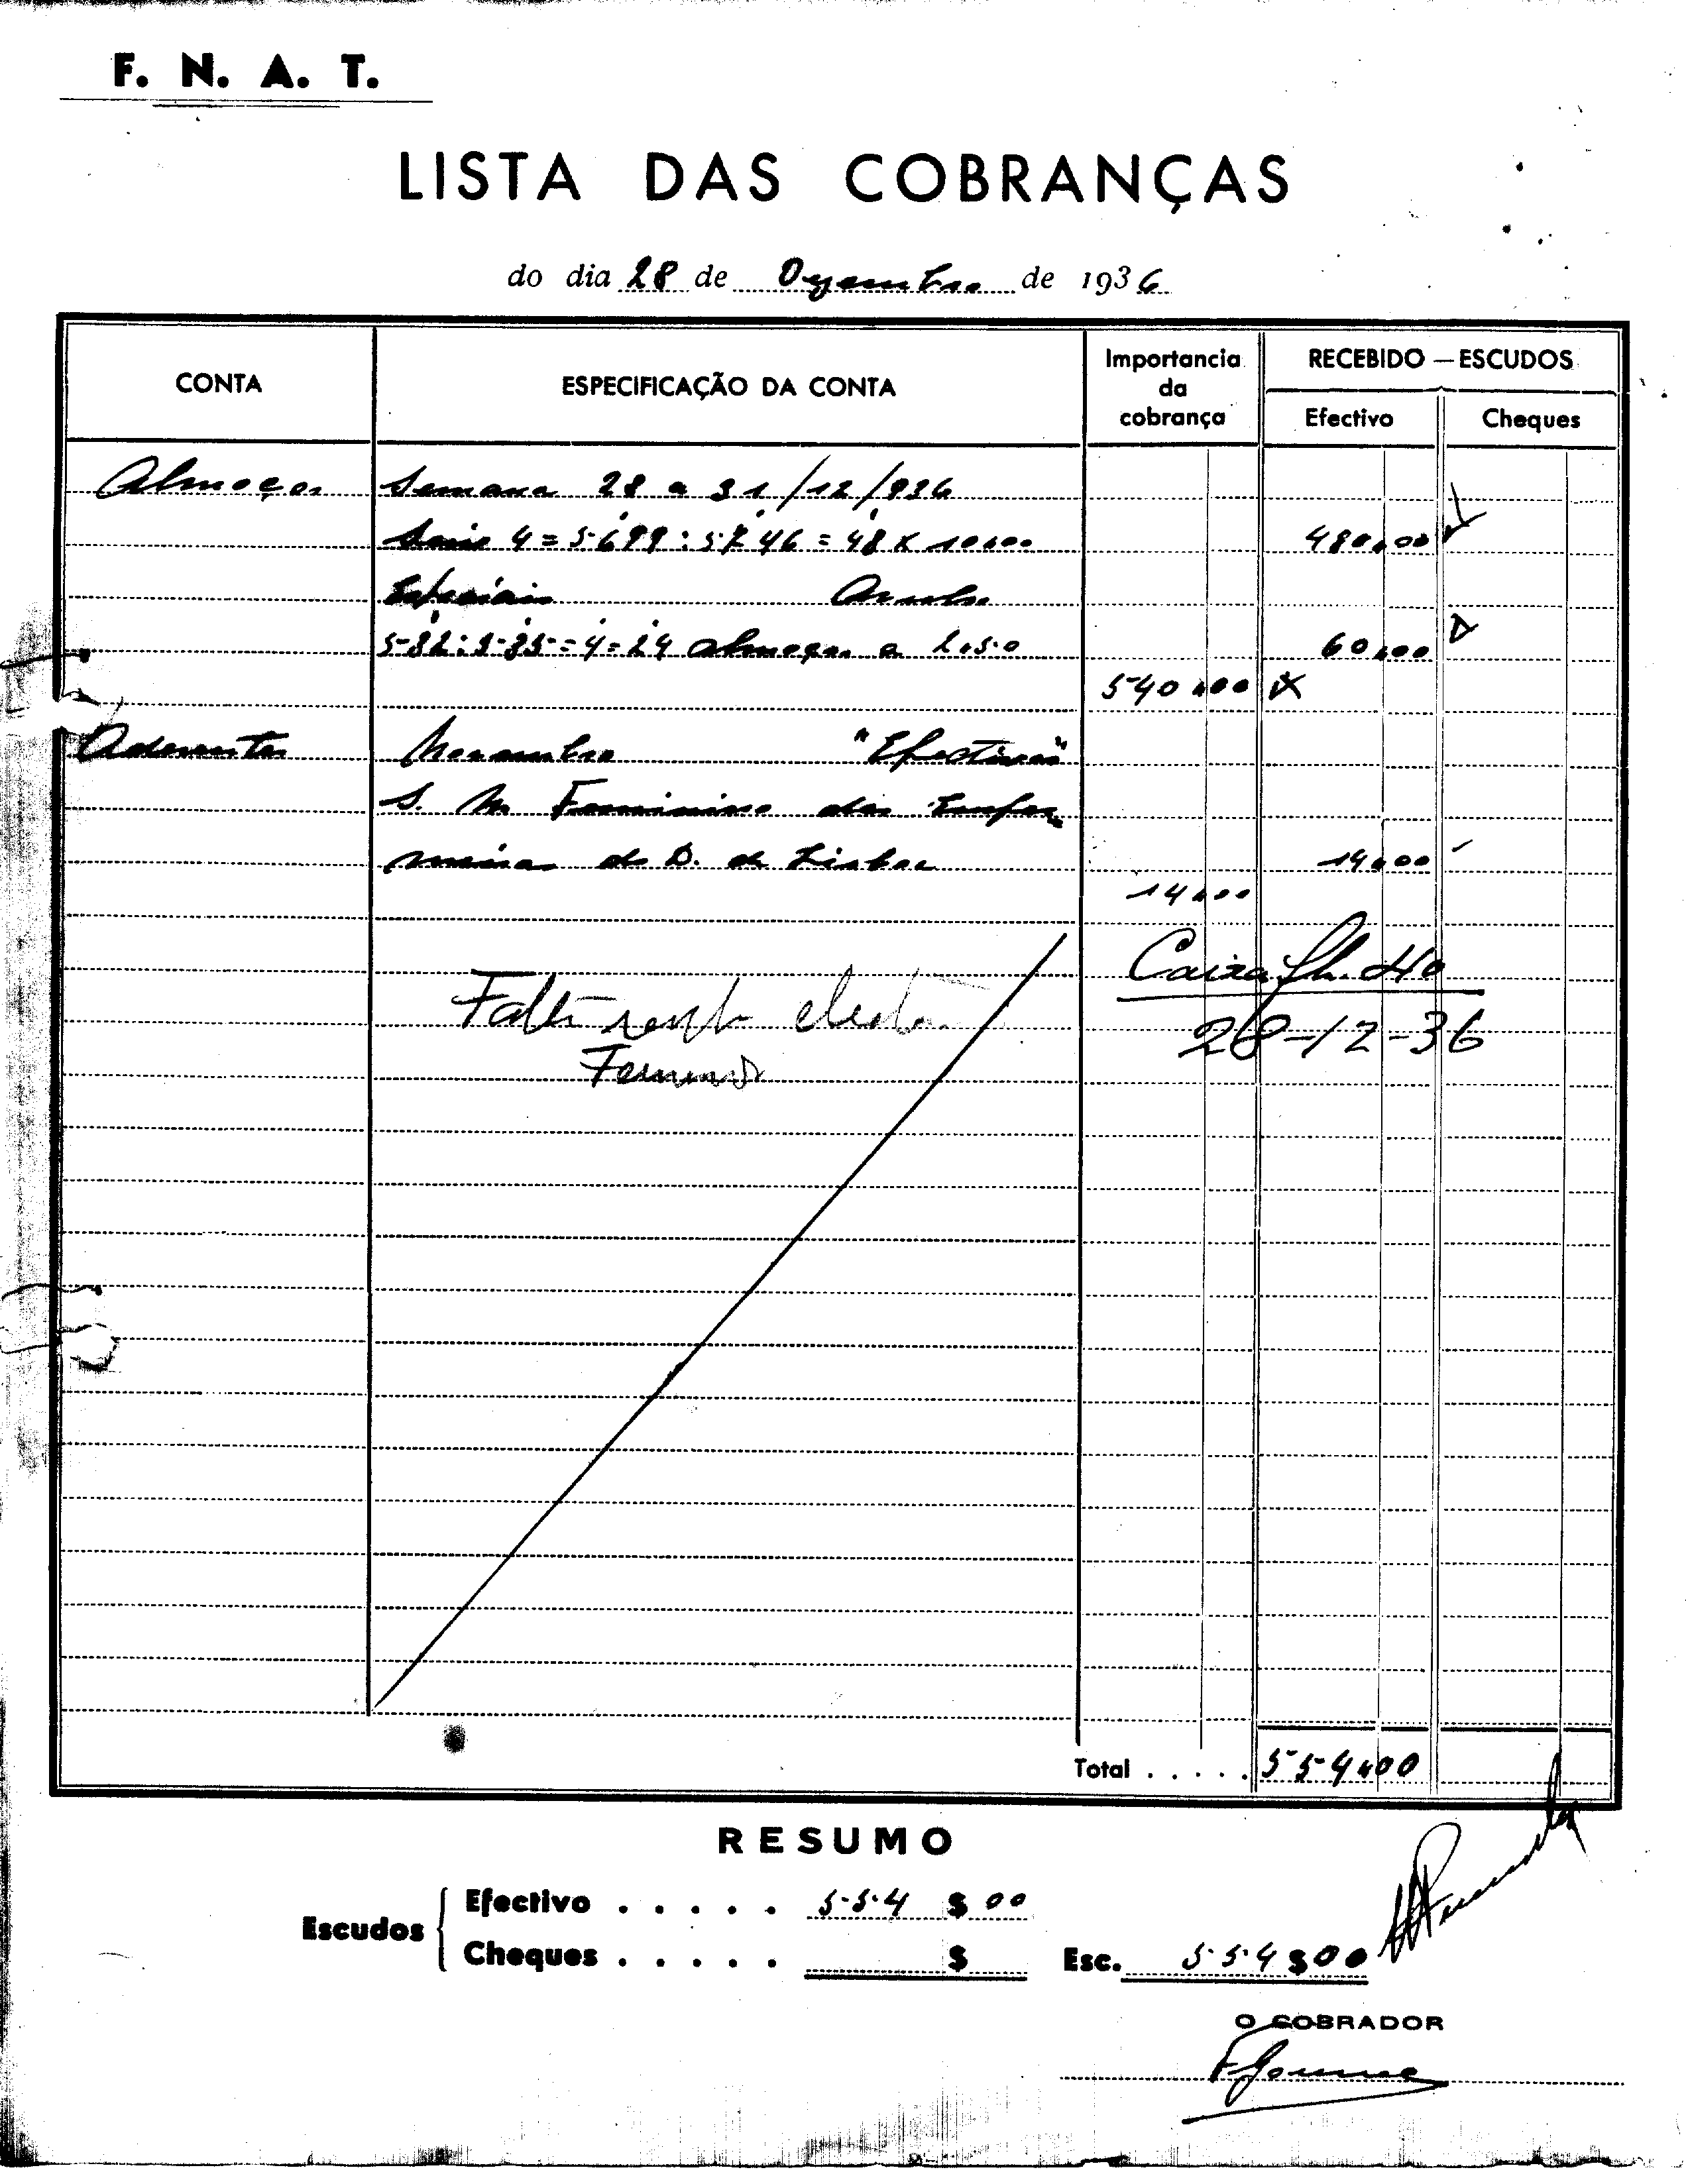 F. N. A. T.
LISTA DAS COBRANÇAS
do dia 28 de Dezembro de 1936
CONTA
ESPECIFICAÇÃO DA CONTA
Importancia da cobrança
RECEBIDO — ESCUDOS
Efectivo
Cheques
Almoços Semana 28 a 31/12/936
Serie 4 = 5699 : 5746 = 48 x 10$00 480$00
Especiais Avulso
582 : 585 = 4 = 24 almoços a 2$50 60$00
540$00
Aderentes Novembro "Efectivos"
S. N. Feminino das Enfer
meiras do D. de Lisboa 14$00
14$00
Caixa fl. 40
28-12-36
Total . . . . . 554$00
RESUMO
Escudos
Efectivo . . . . . 554 $ 00
Cheques . . . . . $
Esc. 554$00
O COBRADOR